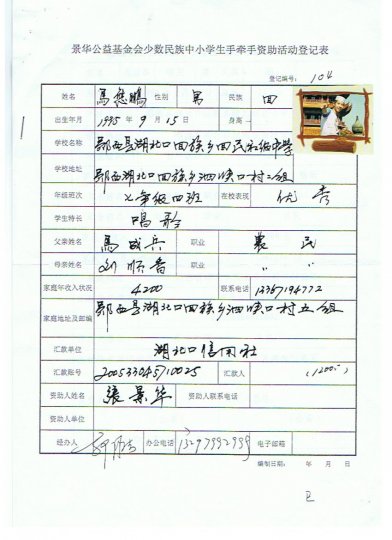 景华公益基金会少数民族中小学生手牵手资助活动登记表
登记编号: 104
姓名 馬 性别 男 民族 回
出生年月 1995 年 9 月 15 日 身高
学校名称 郧西县湖北口回族乡回民初级中学
学校地址 郧西县湖北口回族乡泗峡口村二组
年级班次 七年级四班 在校表现 优秀
学生特长 唱歌
父亲姓名 馬成兵 职业 農民
母亲姓名 刘顺香 职业 〃 〃
家庭年收入状况 4200 联系电话
家庭地址及邮编 郧西县湖北口回族乡泗峡口村五组
汇款单位 湖北口信用社
汇款账号 汇款人 (1200-)
资助人姓名 張景华 资助人联系电话
资助人单位
经办人 办公电话 电子邮箱
编制日期: 年 月 日